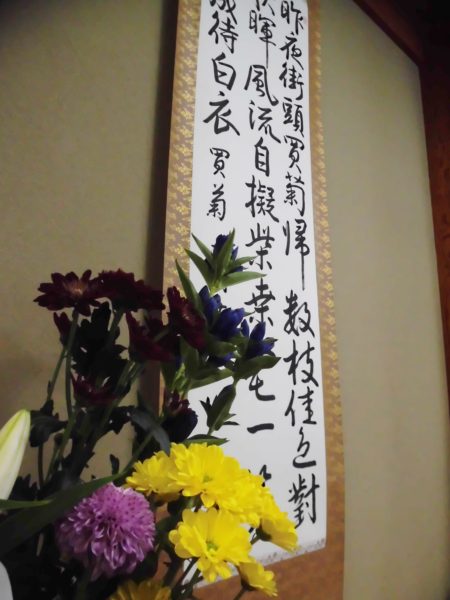 昨夜街頭買菊帰 数枝佳色對
暉 風流自擬柴桑宅一
待白衣 買菊